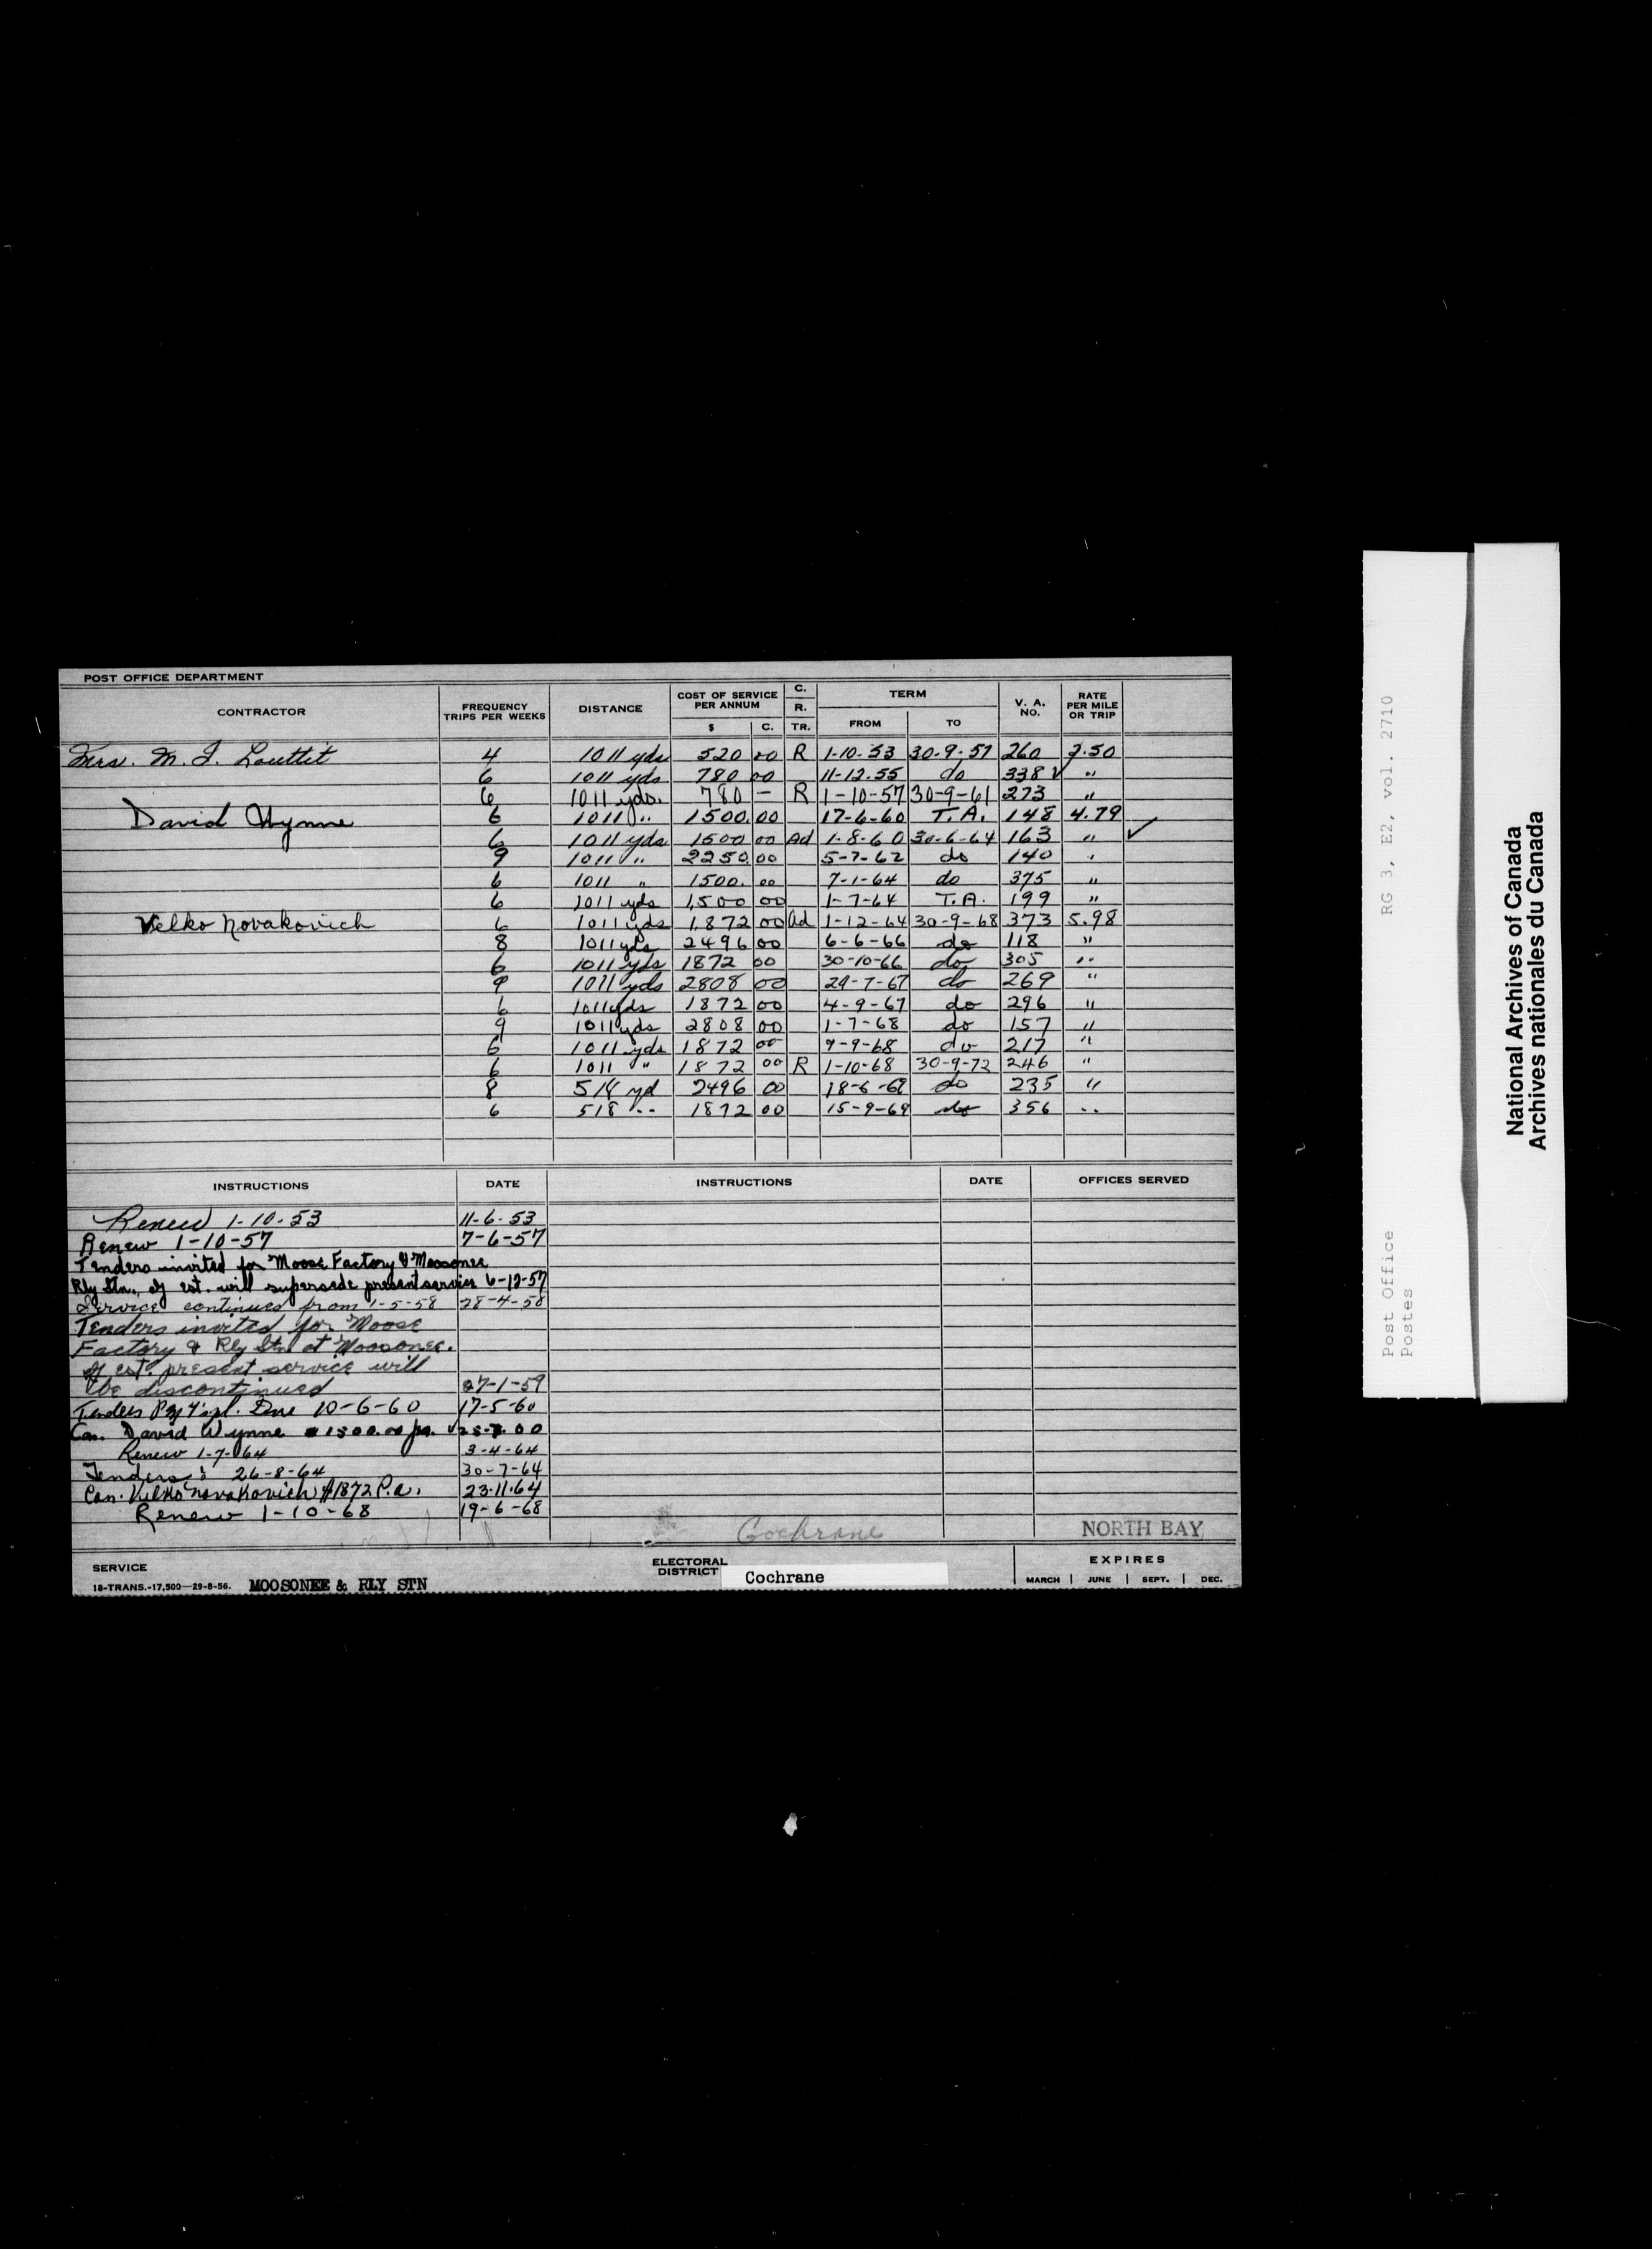 POST OFFICE DEPARTMENT
CONTRACTOR FREQUENCY TRIPS PER WEEKS DISTANCE COST OF SERVICE PER ANNUM $ C. C. R. TR. TERM FROM TO V. A. NO. RATE PER MILE OR TRIP
Mrs. M. I. Louttit 4 1011 yds 520 00 R 1-10-53 30-9-57 260 2.50
6 1011 yds 780 00 11-12-55 do 338 ✓ "
6 1011 yds. 780 — R 1-10-57 30-9-61 273 "
David Wynne 6 1011 " 1500.00 17-6-60 T.A. 148 4.79
6 1011 yds 1500 00 Ad 1-8-60 30-6-64 163 " ✓
9 1011 " 2250.00 5-7-62 do 140 "
6 1011 " 1500. 00 7-1-64 do 375 "
6 1011 yds 1,500 00 1-7-64 T.A. 199 "
Velko Novakovich 6 1011 yds 1,872 00 Ad 1-12-64 30-9-68 373 5.98
8 1011 yds 2496 00 6-6-66 do 118 "
6 1011 yds 1872 00 30-10-66 do 305 "
9 1011 yds 2808 00 29-7-67 do 269 "
6 1011 yds 1872 00 4-9-67 do 296 "
9 1011 yds 2808 00 1-7-68 do 157 "
6 1011 yds 1872 00 9-9-68 do 217 "
6 1011 " 1872 00 R 1-10-68 30-9-72 246 "
8 518 yd 2496 00 18-6-69 do 235 "
6 518 " 1872 00 15-9-69 do 356 "
INSTRUCTIONS DATE INSTRUCTIONS DATE OFFICES SERVED
Renew 1-10-53 11-6-53
Renew 1-10-57 7-6-57
Tenders invited for Moose Factory & Moosonee
Rly Stn., if est. will supersede present service 6-12-57
Service continues from 1-5-58 28-4-58
Tenders invited for Moose
Factory & Rly Stn at Moosonee.
If est. present service will
be discontinued 27-1-59
Tenders Due 10-6-60 17-5-60
Con. David Wynne 1500.00 pa.
Renew 1-7-64 3-4-64
Tenders: 26-8-64 30-7-64
Con. Velko Novakovich $1872 P.a. 23-11-64
Renew 1-10-68 19-6-68
Cochrane NORTH BAY
SERVICE ELECTORAL DISTRICT Cochrane EXPIRES
18-TRANS.-17,500—29-8-56. MOOSONEE & RLY STN MARCH | JUNE | SEPT. | DEC.
Post Office RG 3, E2, vol. 2710
Postes
National Archives of Canada
Archives nationales du Canada